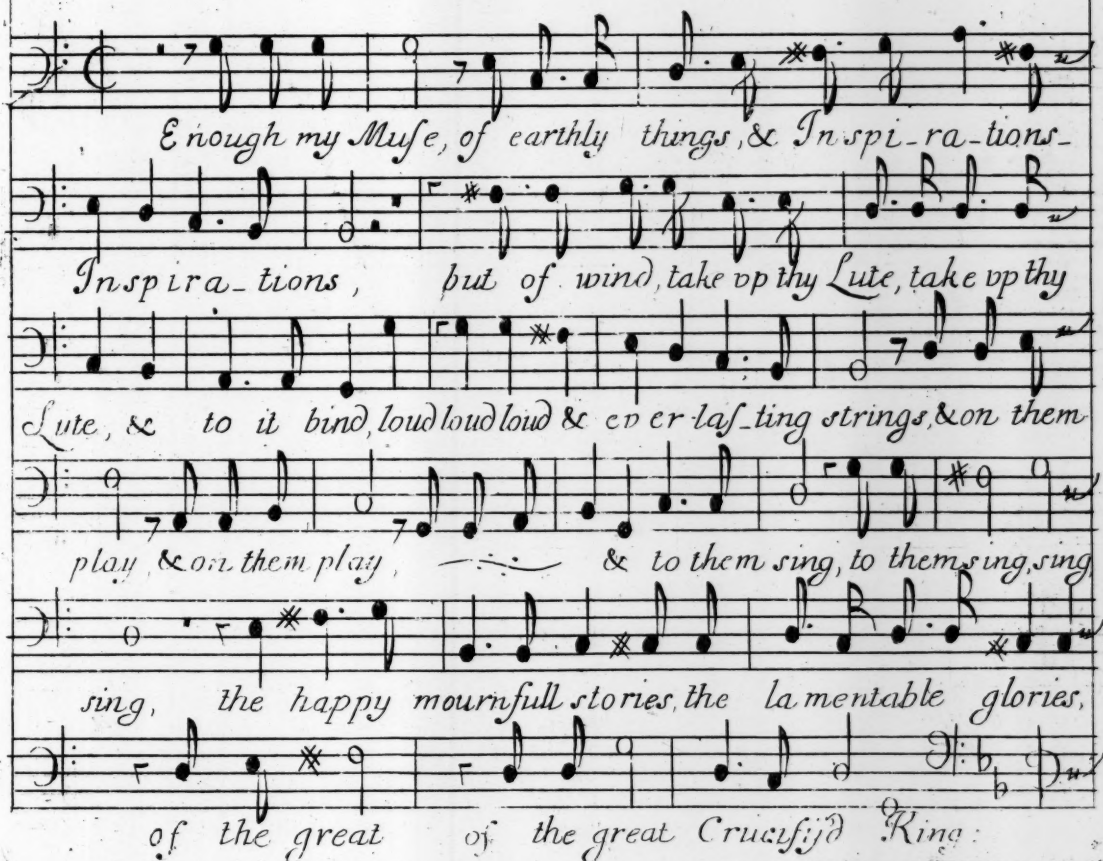 Enough my Muſe, of earthly things, & Inspi-ra-tions-
Inspira-tions, but of wind, take vp thy Lute, take vp thy
Lute, & to it bind, loud loud loud & ever-laſ-ting strings, & on them
play, & on them play, & to them sing, to them sing, sing
sing, the happy mournfull stories, the lamentable glories,
of the great of the great Crucifijd King: